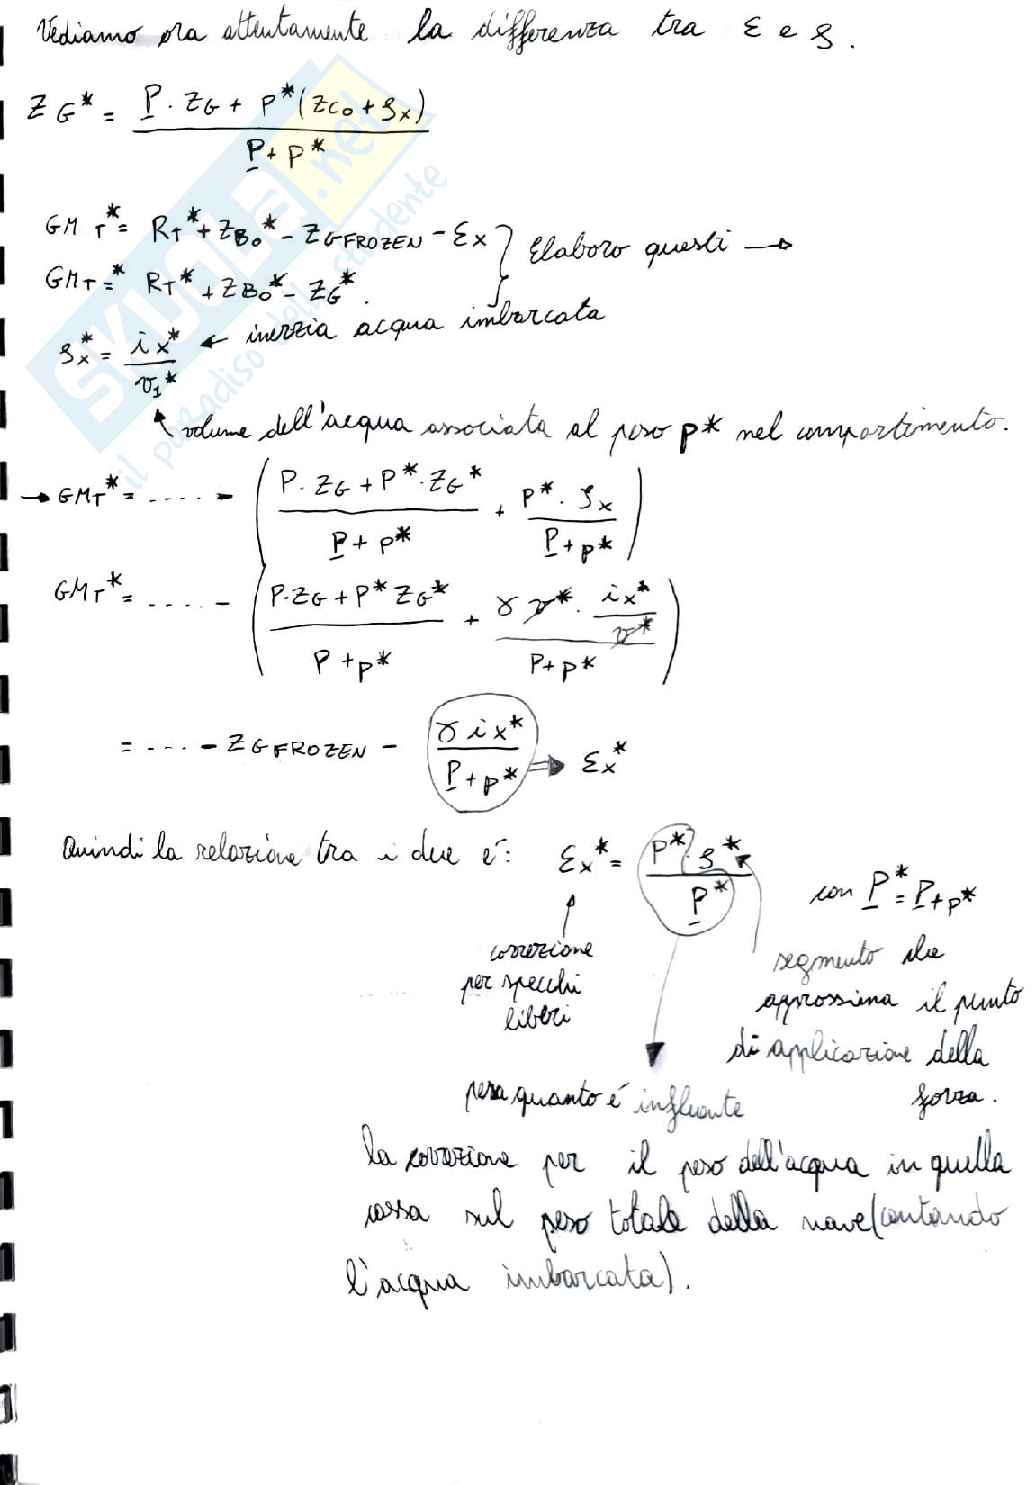 Vediamo ora attentamente la differenza tra ε e ς.
Z G* = P · ZG + P*(ZC0 + ςx) / P + P*
GM T* = RT* + ZB0* - ZG FROZEN - εx } Elaboro questi →
GMT* = RT* + ZB0* - ZG*.
ςx* = ix* / v1* ← inerzia acqua imbarcata
volume dell'acqua associata al peso p* nel compartimento.
→ GMT* = ...... - ( P · ZG + P* · ZG* / P + P* + P* · ςx / P + p* )
GMT* = ...... - ( P · ZG + P* ZG* / P + p* + γ v* · ix* / v* / P + p* )
= .... - ZG FROZEN - γ ix* / P + p* ⇒ εx*
Quindi la relazione tra i due è: εx* = P* · ς* / P*
con P* = P + p*
correzione
per specchi
liberi
segmento che
approssima il punto
di applicazione della
forza.
pesa quanto é influente
la correzione per il peso dell'acqua in quella
cassa sul peso totale della nave (contando
l'acqua imbarcata).
SKUOLA.net
il paradiso dello studente